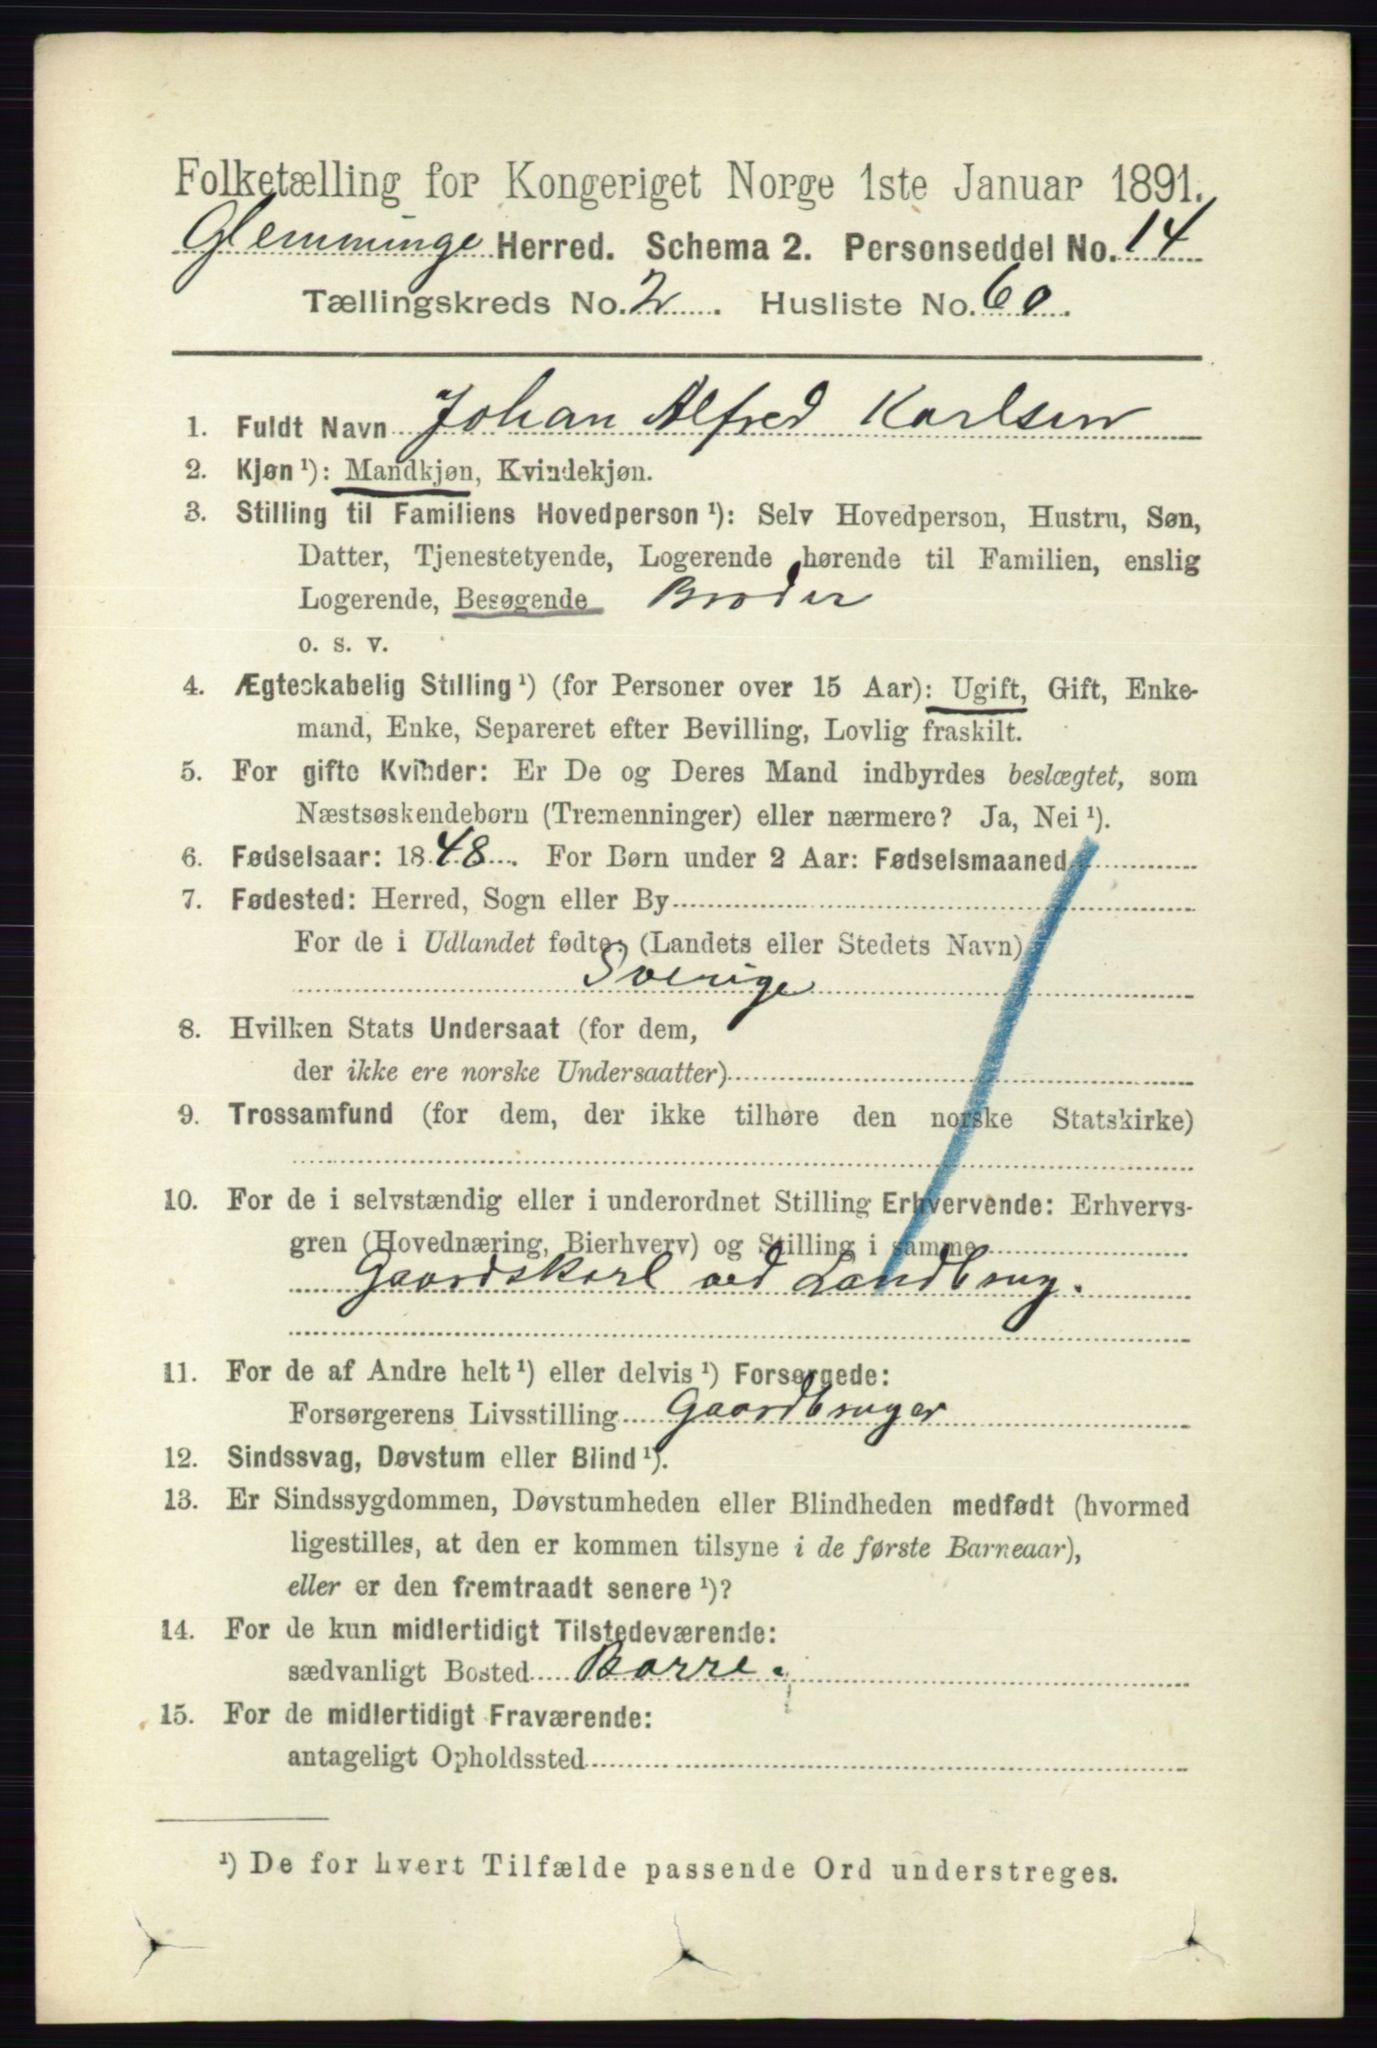 Folketælling for Kongeriget Norge 1ste Januar 1891.
Glemminge Herred. Schema 2. Personseddel No. 14
Tællingskreds No. 2. Husliste No. 60.
1. Fuldt Navn Johan Alfred Karlsen
2. Kjøn ¹): Mandkjøn, Kvindekjøn.
3. Stilling til Familiens Hovedperson ¹): Selv Hovedperson, Hustru, Søn,
Datter, Tjenestetyende, Logerende hørende til Familien, enslig
Logerende, Besøgende Broder
o. s. v.
4. Ægteskabelig Stilling ¹) (for Personer over 15 Aar): Ugift, Gift, Enke-
mand, Enke, Separeret efter Bevilling, Lovlig fraskilt.
5. For gifte Kvinder: Er De og Deres Mand indbyrdes beslægtet, som
Næstsøskendebørn (Tremenninger) eller nærmere? Ja, Nei ¹).
6. Fødselsaar: 1848. For Børn under 2 Aar: Fødselsmaaned
7. Fødested: Herred, Sogn eller By
For de i Udlandet fødte: (Landets eller Stedets Navn)
Sverige
8. Hvilken Stats Undersaat (for dem,
der ikke ere norske Undersaatter)
9. Trossamfund (for dem, der ikke tilhøre den norske Statskirke)
10. For de i selvstændig eller i underordnet Stilling Erhvervende: Erhvervs-
gren (Hovednæring, Bierhverv) og Stilling i samme
Gaardskarl ved Landbrug.
11. For de af Andre helt ¹) eller delvis ¹) Forsørgede:
Forsørgerens Livsstilling Gaardbruger
12. Sindssvag, Døvstum eller Blind ¹).
13. Er Sindssygdommen, Døvstumheden eller Blindheden medfødt (hvormed
ligestilles, at den er kommen tilsyne i de første Barneaar),
eller er den fremtraadt senere ¹)?
14. For de kun midlertidigt Tilstedeværende:
sædvanligt Bosted Borre.
15. For de midlertidigt Fraværende:
antageligt Opholdssted
¹) De for hvert Tilfælde passende Ord understreges.